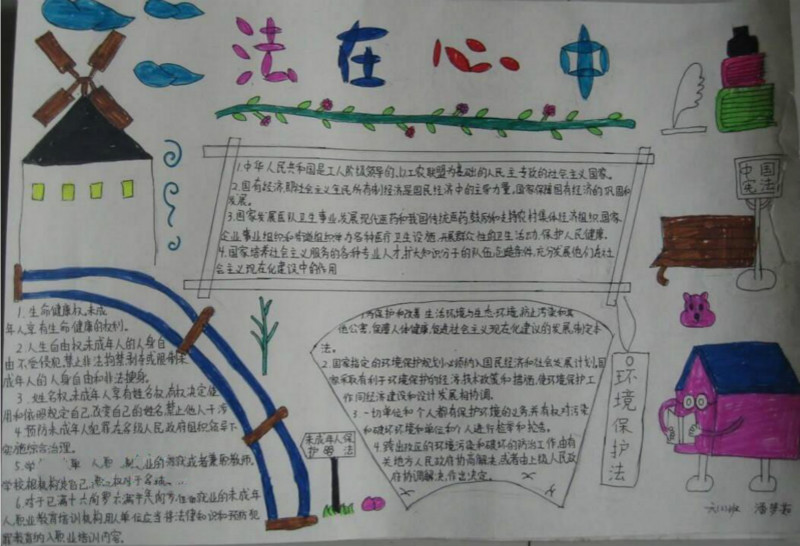 法在心中
1.中华人民共和国是工人阶级领导的、以工农联盟为基础的人民民主专政的社会主义国家。
2.国有经济,即社会主义全民所有制经济,是国民经济中的主导力量。国家保障国有经济的巩固和
发展。
3.国家发展医疗卫生事业,发展现代医药和我国传统医药,鼓励和支持农村集体经济组织,国家
企业事业组织和街道组织举办各种医疗卫生设施,开展群众性的卫生活动,保护人民健康.
4.国家培养社会主义服务的各种专业人才,扩大知识分子的队伍,创造条件,充分发展他们在社
会主义现代化建设中的作用
中国
宪法
1.生命健康权,未成
年人享有生命健康的权利。
2.人生自由权未成年人的人身自
由不受侵犯,禁止非法拘禁
成年人的人身自由和非法搜身.
3.姓名权,未成年人享有姓名权,有权决定使
用和依照规定自己改变自己的姓名,禁止他人干涉
4.预防未成年人犯罪在各级人民政府组织领导下
实施综合治理.
5.
学校
6.对于已满十六周岁
人,职业教育培训机构,用人单位应当将法律知识和预防犯
罪教育纳入职业培训内容.
未成年人保
护法
1.为保护和改善生活环境与生态环境,防止污染和其
他公害,保障人体健康,促进社会主义现代化建设的发展,制定本
法。
2.国家指定的环境保护规划必须纳入国民经济和社会发展计划,国
家采取有利于环境保护的经济,技术政策和措施,使环境保护工
作同经济建设和设计发展相协调.
3.一切单位和个人都有保护环境的义务,并有权对污染
和破坏环境的单位和个人进行检举和控告.
4.跨行政区的环境污染和破坏的防治工作,由有
关地方人民政府协商解决,或者由上级人民政
府协调解决,作出决定。
环境保护法